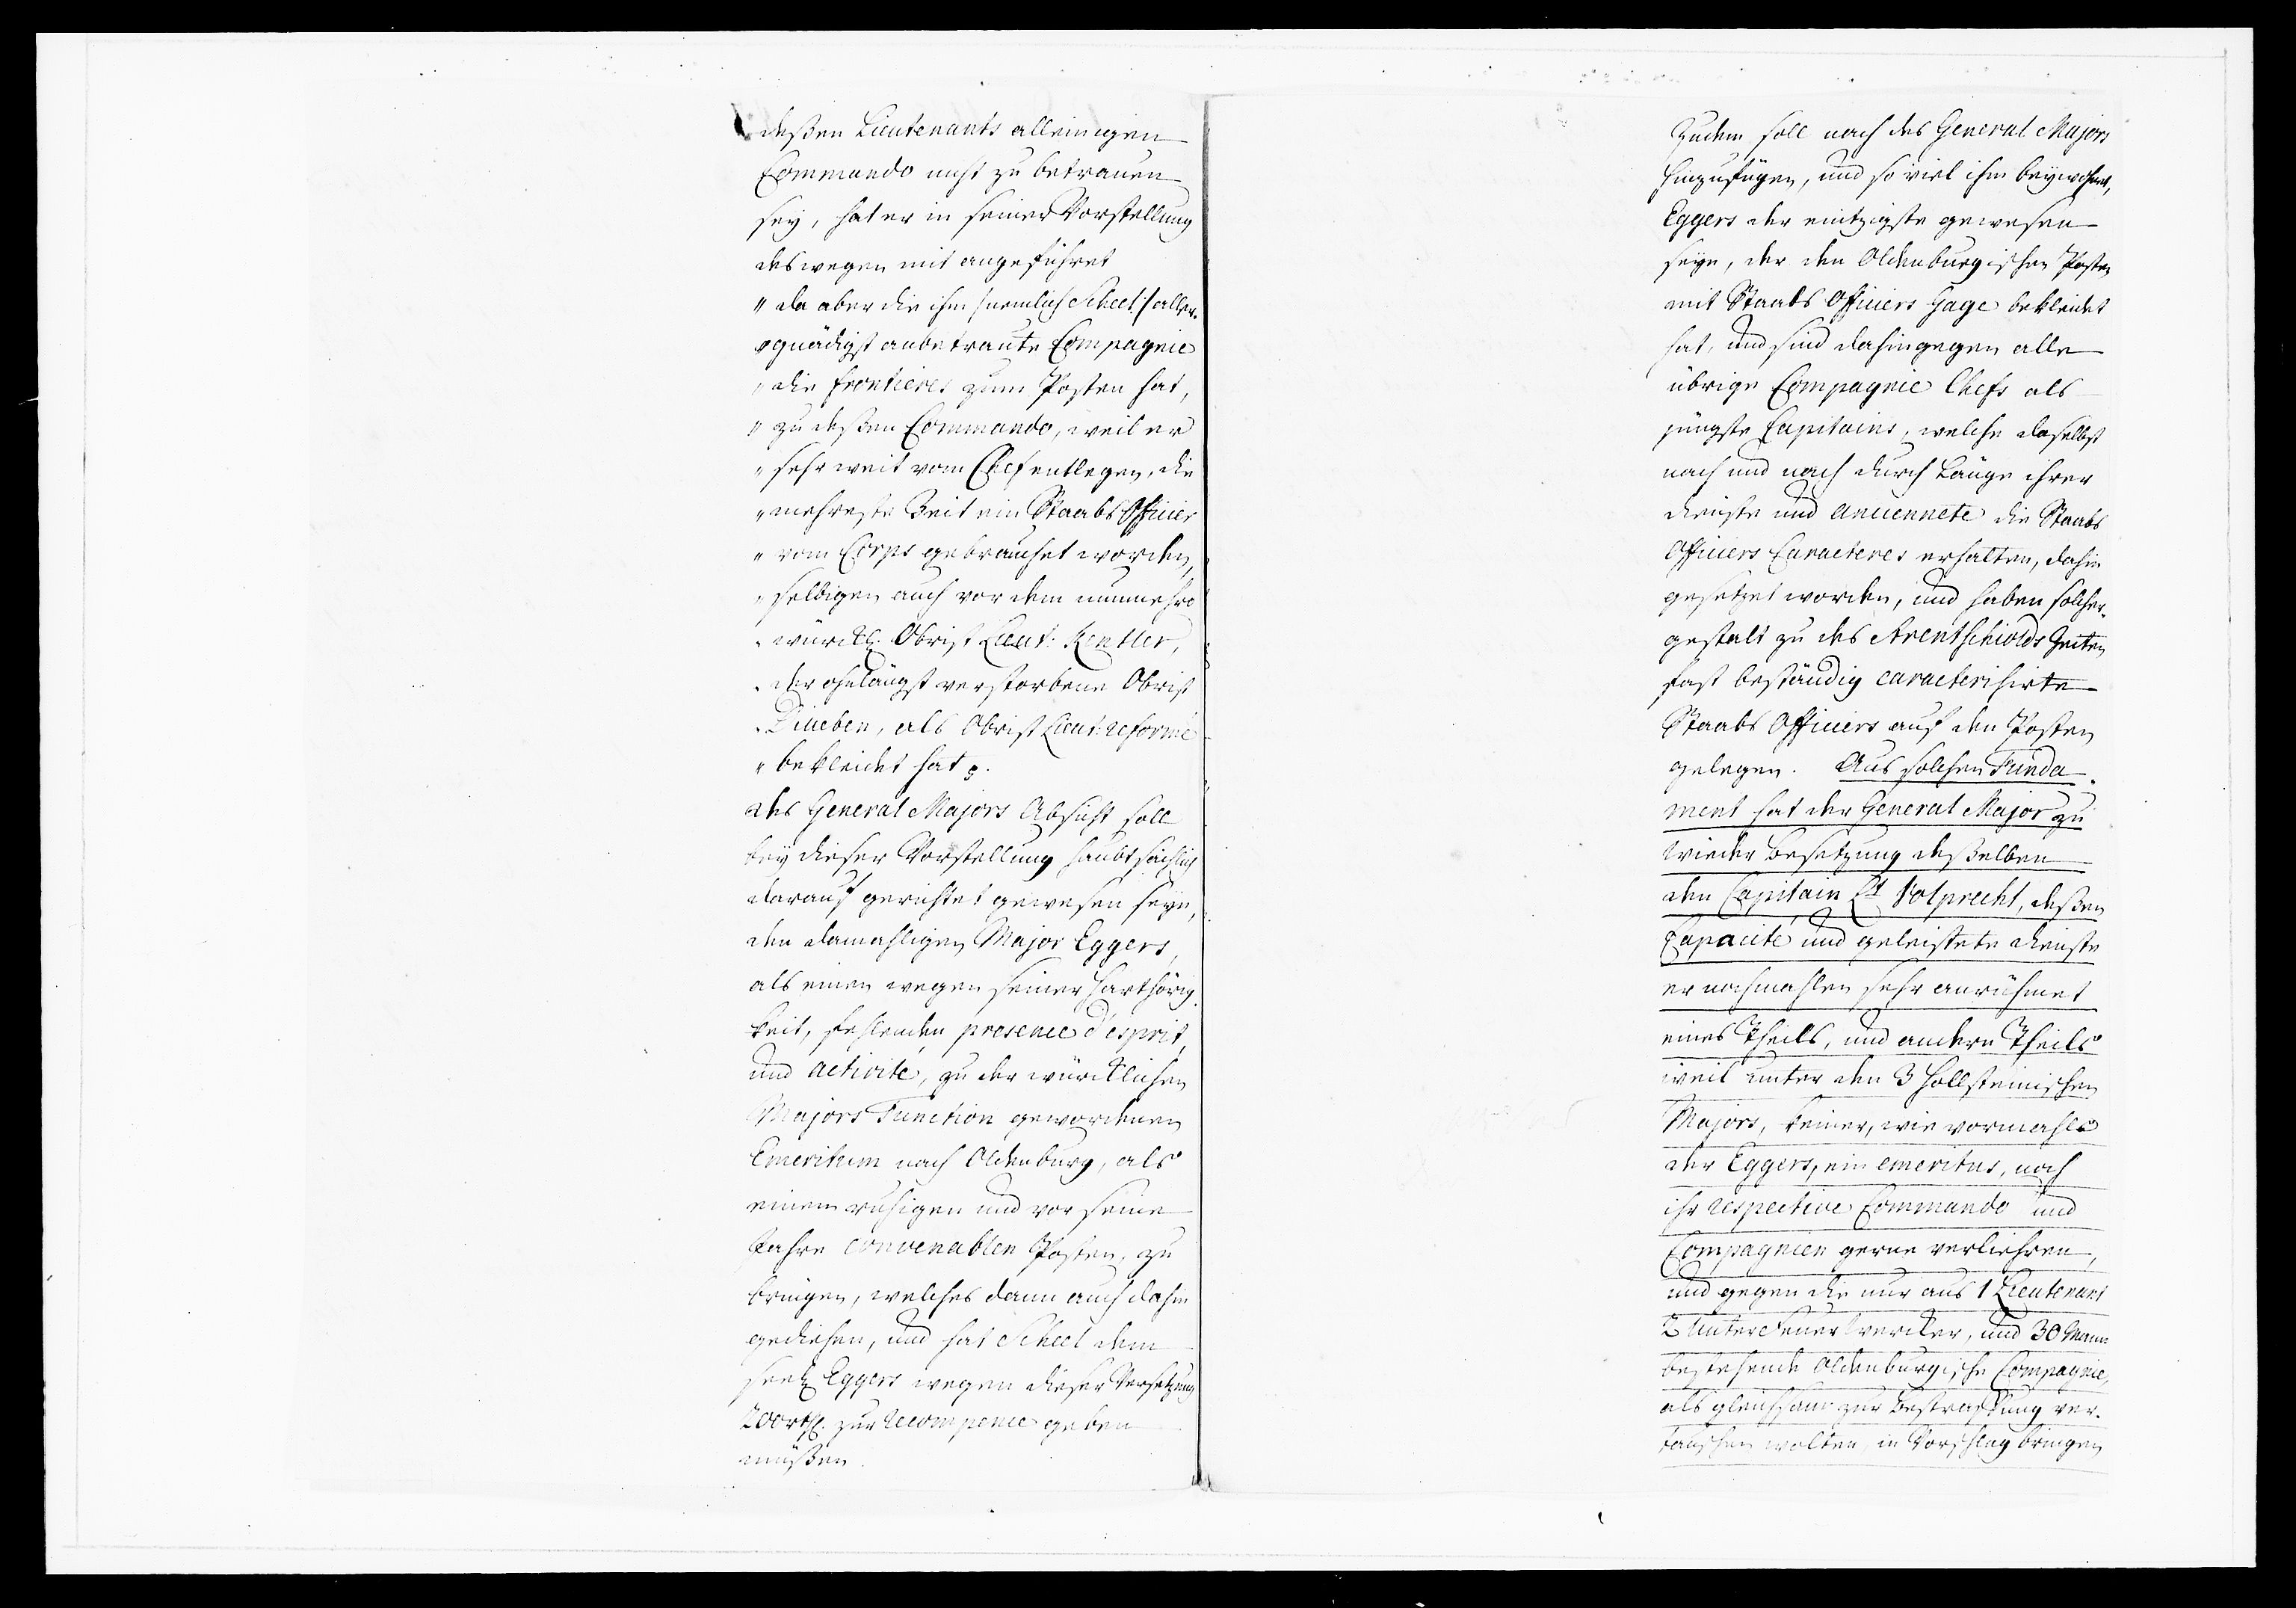 deßen Lieutenants alleinigen
Commando nicht zu betrauen
sey, hat er in seiner Vorstellung
deswegen mit angeführet
" da aber die ihm /:nemlich Scheel:/ aller-
" gnädigst anbetraute Compagnie
" die frontieres zum Posten hat,
" zu deßen Commando, weil er
" sehr weit vom Chef entlegen, die
" mehreste Zeit ein Staabs Officier
" vom Corps gebrauchet worden,
" selbigen auch vor dem nunmehro
" würckl. Obrist Lieut: Kentler,
" der ohnlängst verstorbene Obrist
" Diueben, als Obrist Lieut: reformé
" bekleidet hat p.
des General Majors Absicht soll
bey dieser Vorstellung haubtsächlich
darauf gerichtet gewesen seyn,
den damahligen Major Eggers,
als einen wegen seiner Harthörig-
keit, fehlenden presence d'esprit,
und activité, zu der würcklichen
Majors Function gewordenen
Emeritum nach Oldenburg, als
einem ruhigen und vor seine
Jahre convenablen Posten, zu
bringen, welches dann auch dahin
gediehen, und hat Scheel dem
seel. Eggers wegen dieser Versetzung
200 rthl. zur recompence geben
müßen.
Zudem soll nach des General Majors
hinzufügen, und so viel ihm beywohnet,
Eggers der eintzigste gewesen
seyn, der den Oldenburgischen Posten
mit Staabs Officiers Gage bekleidet
hat, und sind dahingegen alle
übrige Compagnie Chefs als
jüngste Capitains, welche daselbst
nach und nach durch Länge ihrer
Dienste und anciennete die Staabs
Officiers Caracteres erhalten, dahin
gesetzet worden, und haben solcher-
gestalt zu des Arentschiolds Zeiten
fast beständig caracterisirte
Staabs Officiers auf den Posten
gelegen. Aus solchen Funda-
ment hat der General Major zu
wieder Besetzung deßelben
den Capitain Lt Volprecht, deßen
Capacité und geleistete Dienste
er nochmahlen sehr anrühmet
eines Theils, und andern Theils
weil unter den 3 Hollsteinischen
Majors, keiner, wie vormahls
der Eggers, ein emeritus, noch
ihr respective Commando und
Compagnien gerne verliehren,
und gegen die nur aus 1 Lieutenant
2 Unter Feuerwercker, und 30 Mann
bestehende Oldenburgische Compagnie,
als gleichsam zur Bestraffung ver-
tauschen wolten, in Vorschlag bringen